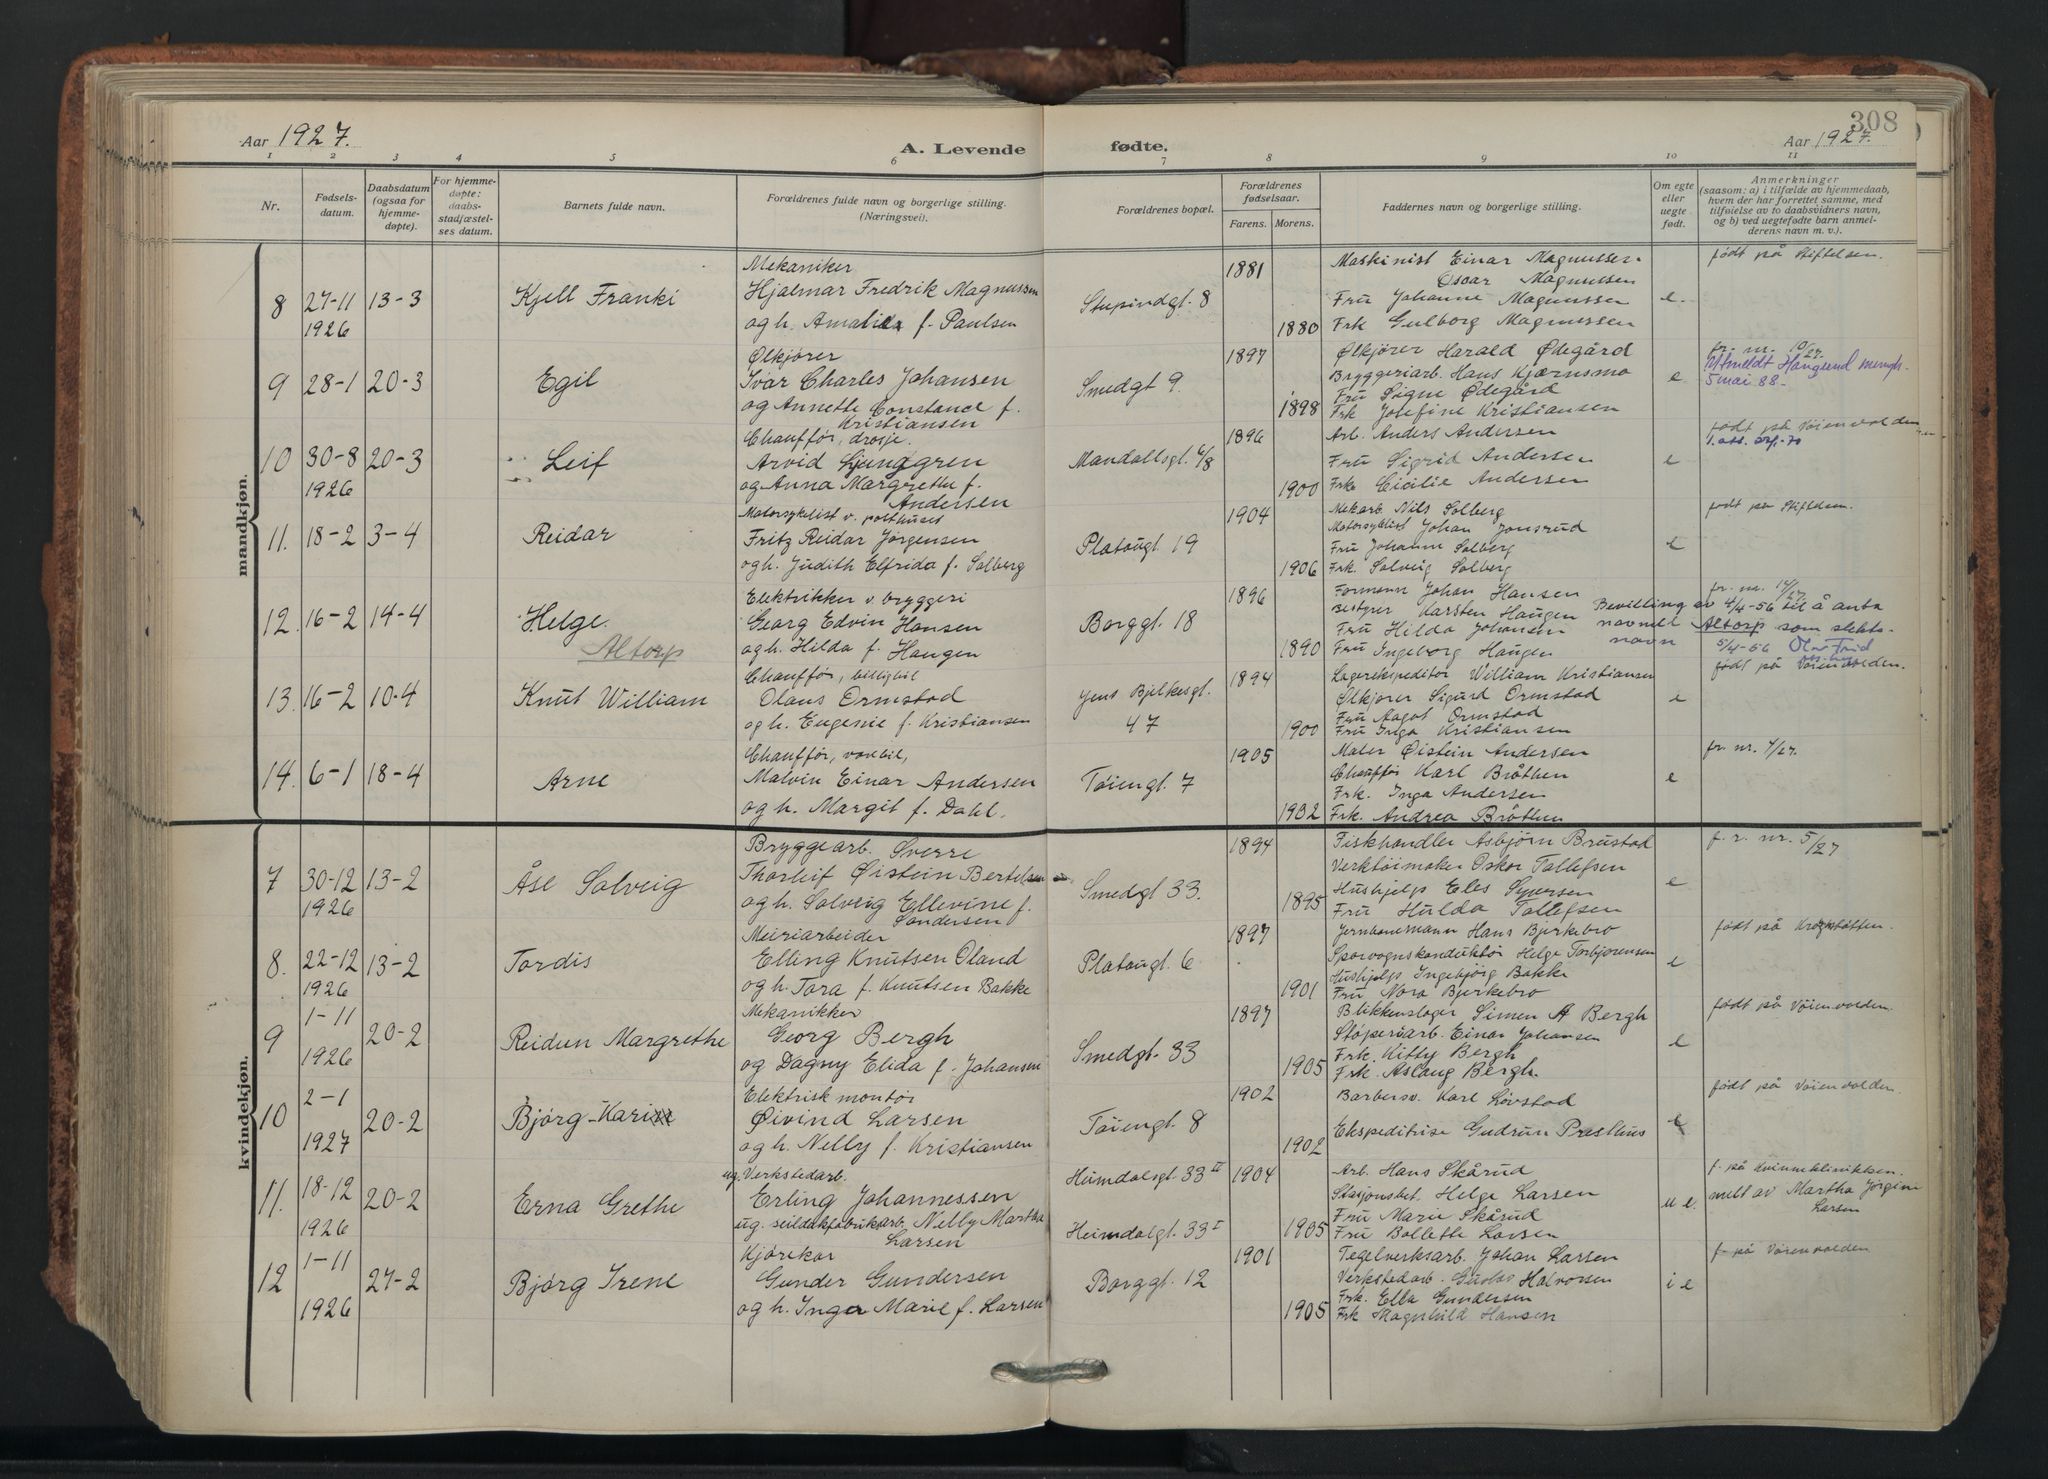 308
Aar 1927.
A. Levende
fødte.
Aar 1927.
1 2 3 4 5 6 7 8 9 10 11
Nr.
Fødsels-
datum.
Daabsdatum
(ogsaa for
hjemme-
døpte).
For hjemme-
døpte:
daabs-
stadfæstel-
ses datum.
Barnets fulde navn.
Forældrenes fulde navn og borgerlige stilling.
(Næringsvei).
Forældrenes bopæl.
Forældrenes
fødselsaar.
Farens. Morens.
Faddernes navn og borgerlige stilling.
Om egte
eller
uegte
født.
Anmerkninger
(saasom: a) i tilfælde av hjemmedaab,
hvem der har forrettet samme, med
tilføielse av to daabsvidners navn,
og b) ved uegtefødte barn anmel-
derens navn m. v.).
mandkjøn.
8
27-11
1926
13-3
Kjell Franki
Mekaniker
Hjalmar Fredrik Magnussen
og h. Amalie f. Paulsen
Stupindgt. 8
1881
1880
Maskinist Einar Magnussen
Oscar Magnussen
Fru Johanne Magnussen
Frk Gulborg Magnussen
e.
født på Stiftelsen.
9
28-1
20-3
Egil
Ølkjører
Ivar Charles Johansen
og Annette Constance f.
Kristiansen
Smedgt 9.
1897
1898
Ølkjører Harald Ødegård
Bryggeriarb. Hans Kjærnsmo
Fru Signe Ødegård
Frk Josefine Kristiansen
e
fr. nr. 10/27.
Utmeldt Haugerud menigh.
5 mai 88.
10
30-8
1926
20-3
Leif
Chauffør, drosje.
Arvid Ljunggren
og Anna Margrethe f.
Andersen
Mandallsgt. 6/8
1896
1900
Arb. Anders Andersen
Fru Sigrid Andersen
Frk Cicilie Andersen
e
født på Vøienvolden
11.
18-2
3-4
Reidar
Motorsyklist v. posthuset
Fritz Reidar Jørgensen
og h. Judith Elfrida f. Solberg
Platougt. 19
1904
1906
Mekarb. Nils Solberg
Motorsyklist Johan Jonsrud
Fru Johanne Solberg
Frk. Solveig Solberg
e
født på Stiftelsen.
12.
16-2
14-4
Helge.
Altorp
Elektrikker v. bryggeri
Georg Edvin Hansen
og h. Hilda f. Haugen
Borggt. 18
1896
1890
Formann Johan Hansen
Bestyrer Karsten Haugen
Fru Hilda Johansen
Fru Ingeborg Haugen
fr. nr. 14/27.
Bevilling av 4/4-56 til å anta
navnet Altorp som slekts-
navn 5/4-56
13.
16-2
10-4
Knut William
Chauffør, billigbil
Olaus Ormstad
og h. Eugenie f. Kristiansen
Jens Bjelkesgt.
47
1894
1900
Lagerekspeditør William Kristiansen
Ølkjører Sigurd Ormstad
Fru Aagot Ormstad
Fru Inga Kristiansen
e
født på Vøienvolden.
14.
6-1
18-4
Arne
Chauffør, varebil,
Malvin Einar Andersen
og h. Margit f. Dahl.
Tøiengt. 7
1905
1902
Maler Øistein Andersen
Chauffør Karl Bråthen
Frk. Inga Andersen
Frk. Andrea Bråthen
e
fr. nr. 7/27.
kvindekjøn.
7
30-12
1926
13-2
Åse Solveig
Bryggearb. Sverre
Thorleif Øistein Bertelsen
og h. Solveig Ellevine f.
Sandersen
Smedgt 33.
1894
1895
Fiskhandler Asbjørn Brustad
Verktøimaker Oskar Tollefsen
Hushjelp Eles Syversen
Fru Hulda Tollefsen
e
f. r. nr. 5/27
8.
22-12
1926
13-2
Tordis
Meiriarbeider
Elling Knutsen Oland
og h. Tora f. Knutsen Bakke
Platougt. 6
1897
1901
Jernbanemann Hans Bjerkebro
Sporvognskonduktør Helge Torbjørensen
Hushjelp Ingebjørg Bakke
Fru Nora Bjerkebro
e
født på Krogstøtten.
9
1-11
1926
20-2
Reidun Margrethe
Mekanikker
Georg Bergh
og Dagny Elida f. Johansen
Smedgt. 33
1897
1905
Blikkenslager Simen A Bergh
Støperiarb. Einar Johansen
Frk. Kitty Bergh
Frk. Aslaug Bergh.
e
født på Vøienvolden.
10
2-1
1927
20-2
Bjørg-Kari
Elektrisk montør
Øivind Larsen
og h. Nelly f. Kristiansen
Tøiengt. 8
1902
1902
Barbersv. Karl Løvstad
Ekspeditrise Gudrun Presthus
e
født på Vøienvolden
11.
18-12
1926
20-2
Erna Grethe
ug. Verkstedarb.
Erling Johannessen
ug. seildukfabrikarb. Nelly Martha
Larsen
Heimdalsgt. 33 II
Heimdalsgt. 33 I
1904
1905
Arb. Hans Skårud
Stasjonsbet. Helge Larsen
Fru Marie Skårud
Fru Bolleth Larsen
u e.
f. på Kvinneklinikken.
melt av Martha Jørgine
Larsen
12
1-11
1926
27-2
Bjørg Irene
Kjørekar
Gunder Gundersen
og h. Inga Marie f. Larsen
Borggt. 12
1901
1905
Tegelverksarb. Johan Larsen
Verkstedarb. Gustav Halvorsen
Frk. Ella Gundersen
Frk Magnhild Hansen
i e
f. på Vøienvolden